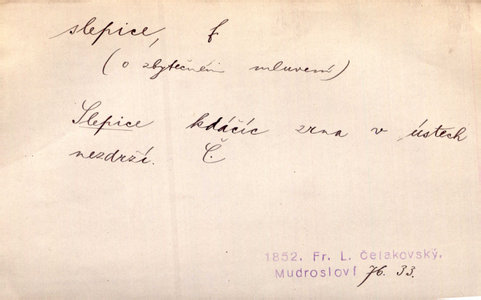 slepice, f
(o zbytečném mluvení)
Slepice kdáčíc zrna v ústech
nezdrží. Č.
1852. Fr. L. Čelakovský.
Mudrosloví 76. 33.